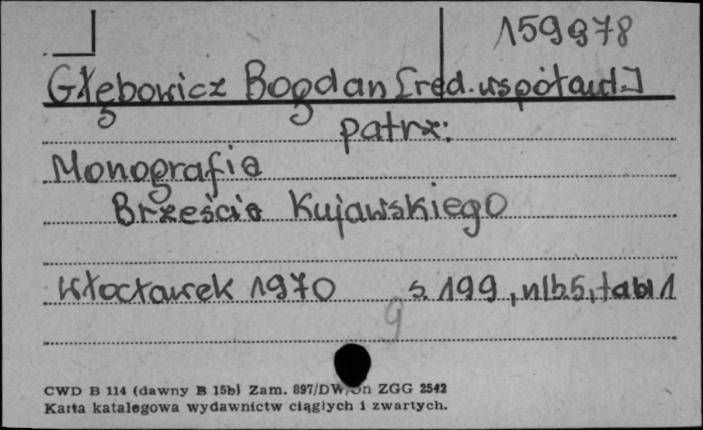 159978
Głębowicz Bogdan [red. współaut.]
patrz:
Monografia
Brześcia Kujawskiego
Włocławek 1970 s. 199, nlb. 5, tabl 1
9
CWD B 114 (dawny B 15b) Zam. 897/DW/ ZGG 2542
Karta katalogowa wydawnictw ciągłych i zwartych.